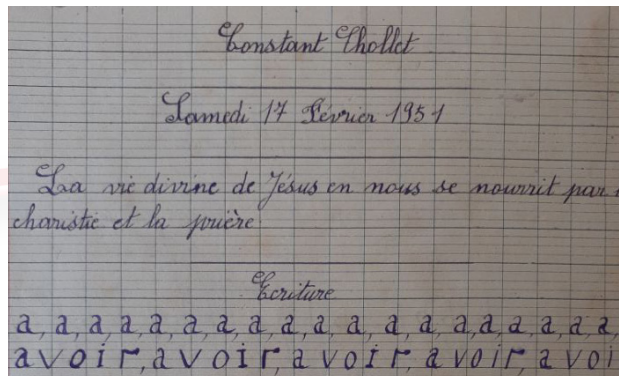 Constant Chollet
Samedi 17 Février 1951
La vie divine de Jésus en nous se nourrit par
charistie et la prière
Ecriture
a, a, a, a, a, a, a, a, a, a, a, a, a, a, a, a, a, a, a,
avoir, avoir, avoir, avoir, avoi